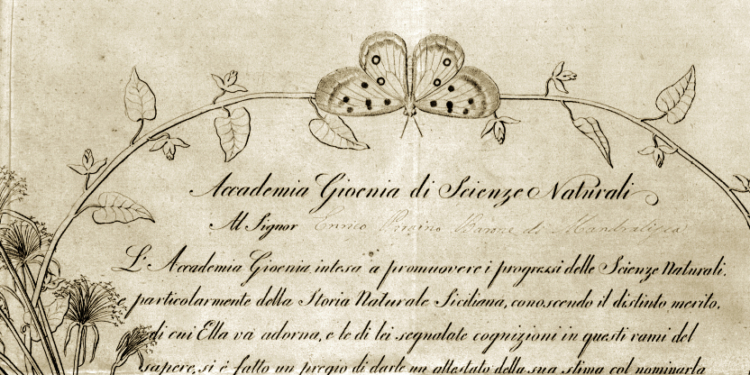 Accademia Gioenia di Scienze Naturali
Al Signor Enrico Pirajno Barone di Mandralisca
L'Accademia Gioenia, intesa a promuovere i progressi delle Scienze Naturali.
e particolarmente della Storia Naturale Siciliana, conoscendo il distinto merito,
di cui Ella và adorna, e le di lei segnalate cognizioni in questi rami del
sapere, si è fatto un pregio di darle un attestato della sua stima col nominarla